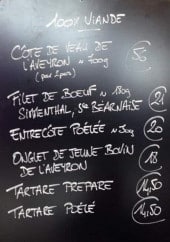 100% VIANDE
CÔTE DE VEAU DE
L'AVEYRON ~ 700g
(pour 2 pers) 50
FILET DE BOEUF ~ 180g
SIMENTHAL, SCE BÉARNAISE 21
ENTRECÔTE POÊLÉE ~ 300g 20
ONGLET DE JEUNE BOVIN
DE L'AVEYRON 18
TARTARE PREPARE 14,50
TARTARE POÊLÉ 14,50